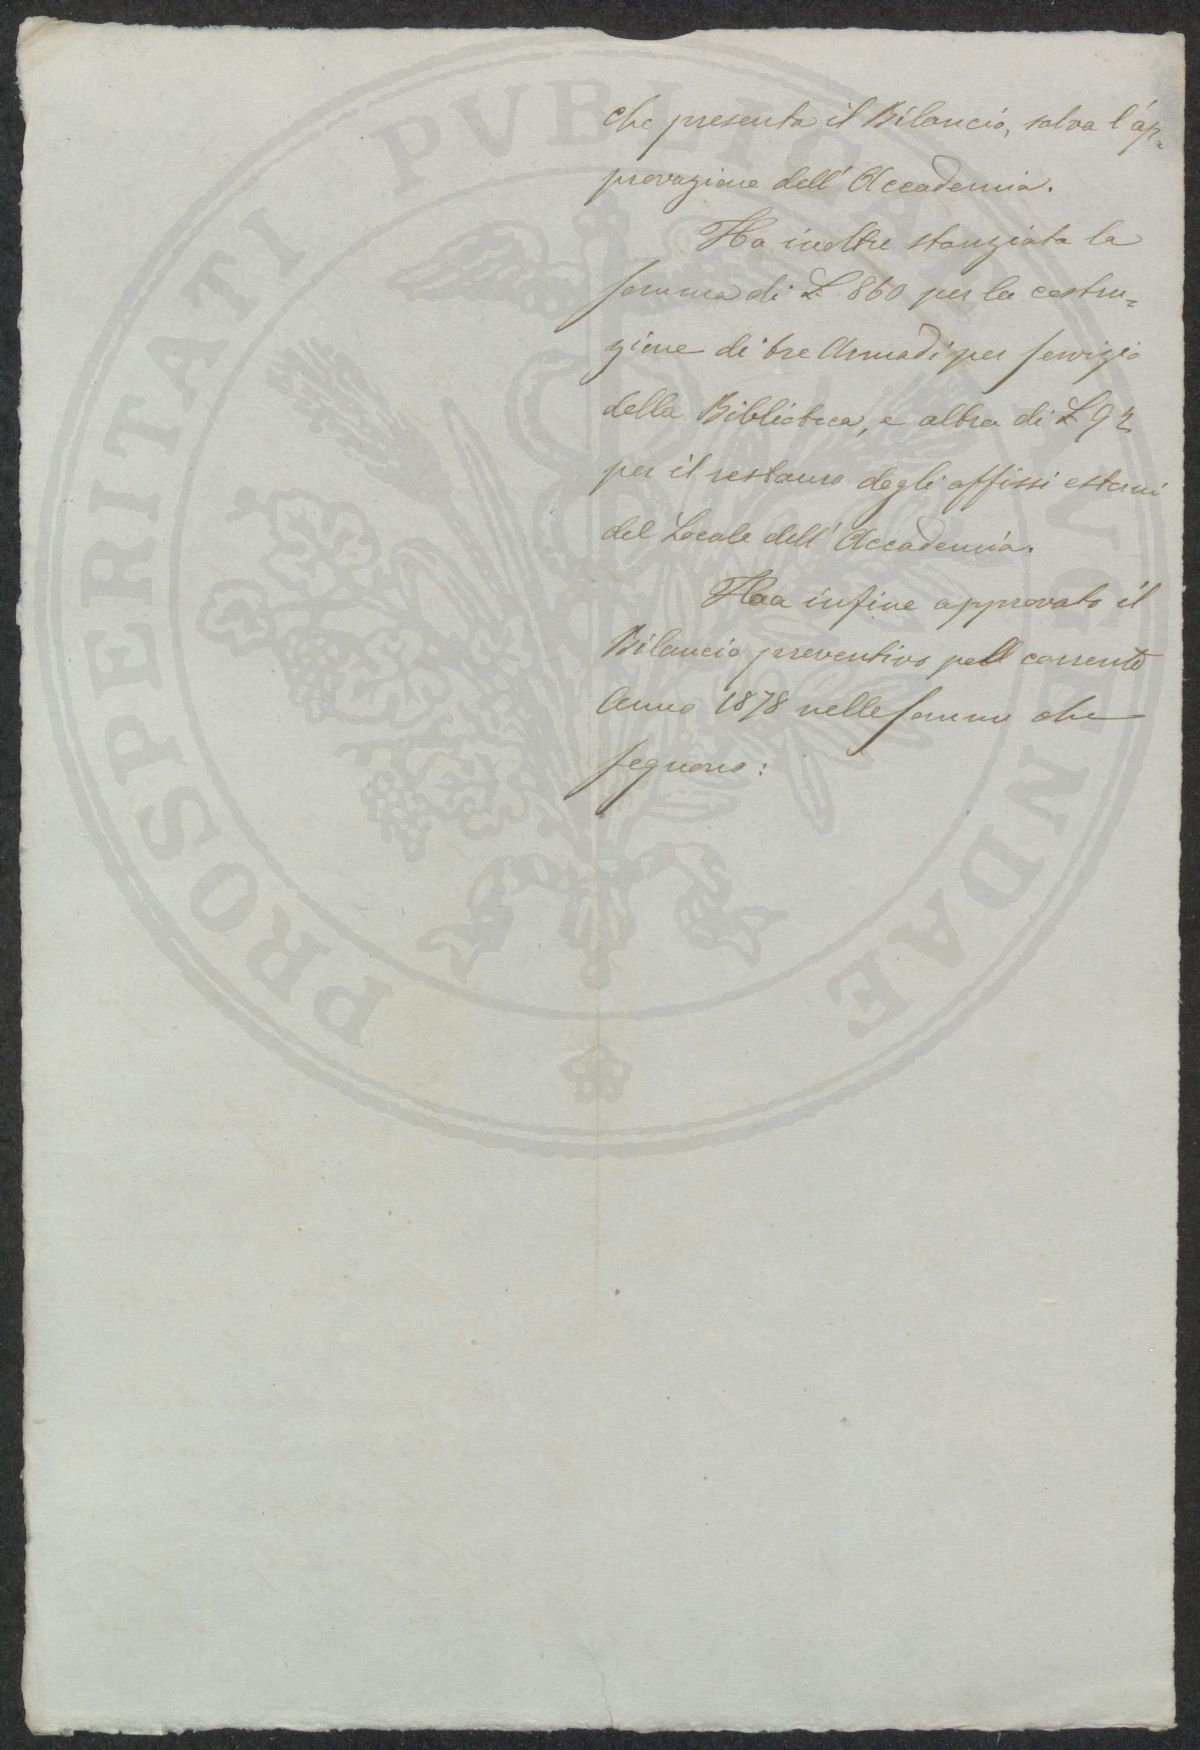 che presenta il Bilancio, salva l'ap=
provazione dell'Accademia.
Ha inoltre stanziata la
somma di L 860 per la costru=
zione di tre Armadi per servizio
della Biblioteca, e altra di L 92
per il restauro degli affissi esterni
del Locale dell'Accademia.
Ha infine approvato il
Bilancio preventivo pell corrente
Anno 1878 nelle somme che
seguono:
PROSPERITATI PVBLICAE AVGENDAE